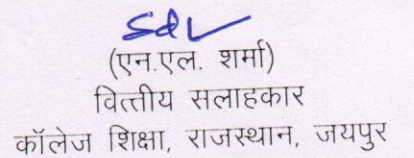 Sd/
(एन.एल. शर्मा)
वित्तीय सलाहकार
कॉलेज शिक्षा, राजस्थान, जयपुर